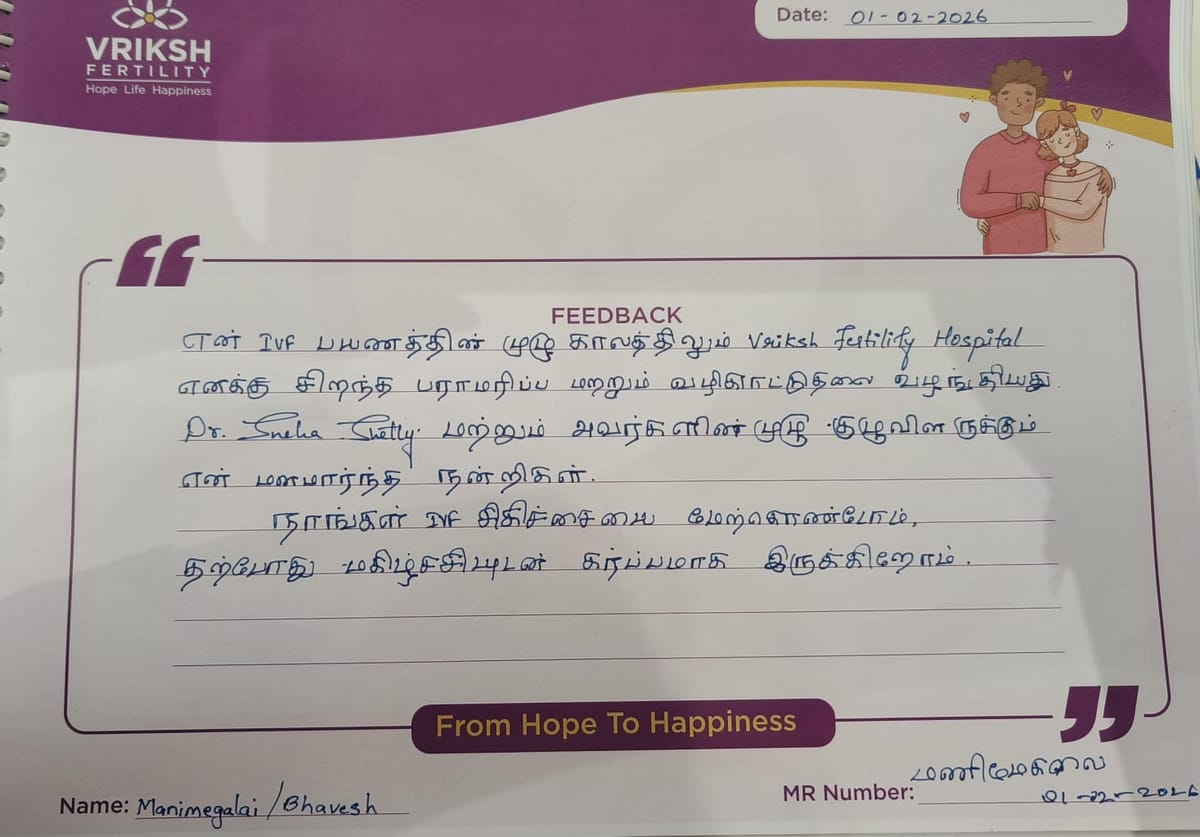 VRIKSH
FERTILITY
Hope Life Happiness
Date: 01-02-2026
FEEDBACK
என் IVF பயணத்தின் முழு காலத்திலும் Vriksh Fertility Hospital
எனக்கு சிறந்த பராமரிப்பு மற்றும் வழிகாட்டுதலை வழங்கியது.
Dr. Sneha Shetty. மற்றும் அவர்களின் முழு குழுவினருக்கும்
என் மனமார்ந்த நன்றிகள்.
நாங்கள் IVF சிகிச்சையை மேற்கொண்டோம்,
தற்போது மகிழ்ச்சியுடன் கர்ப்பமாக இருக்கிறோம்.
From Hope To Happiness
Name: Manimegalai / Bhavesh
மணிமேகலை
MR Number: 01-02-2026